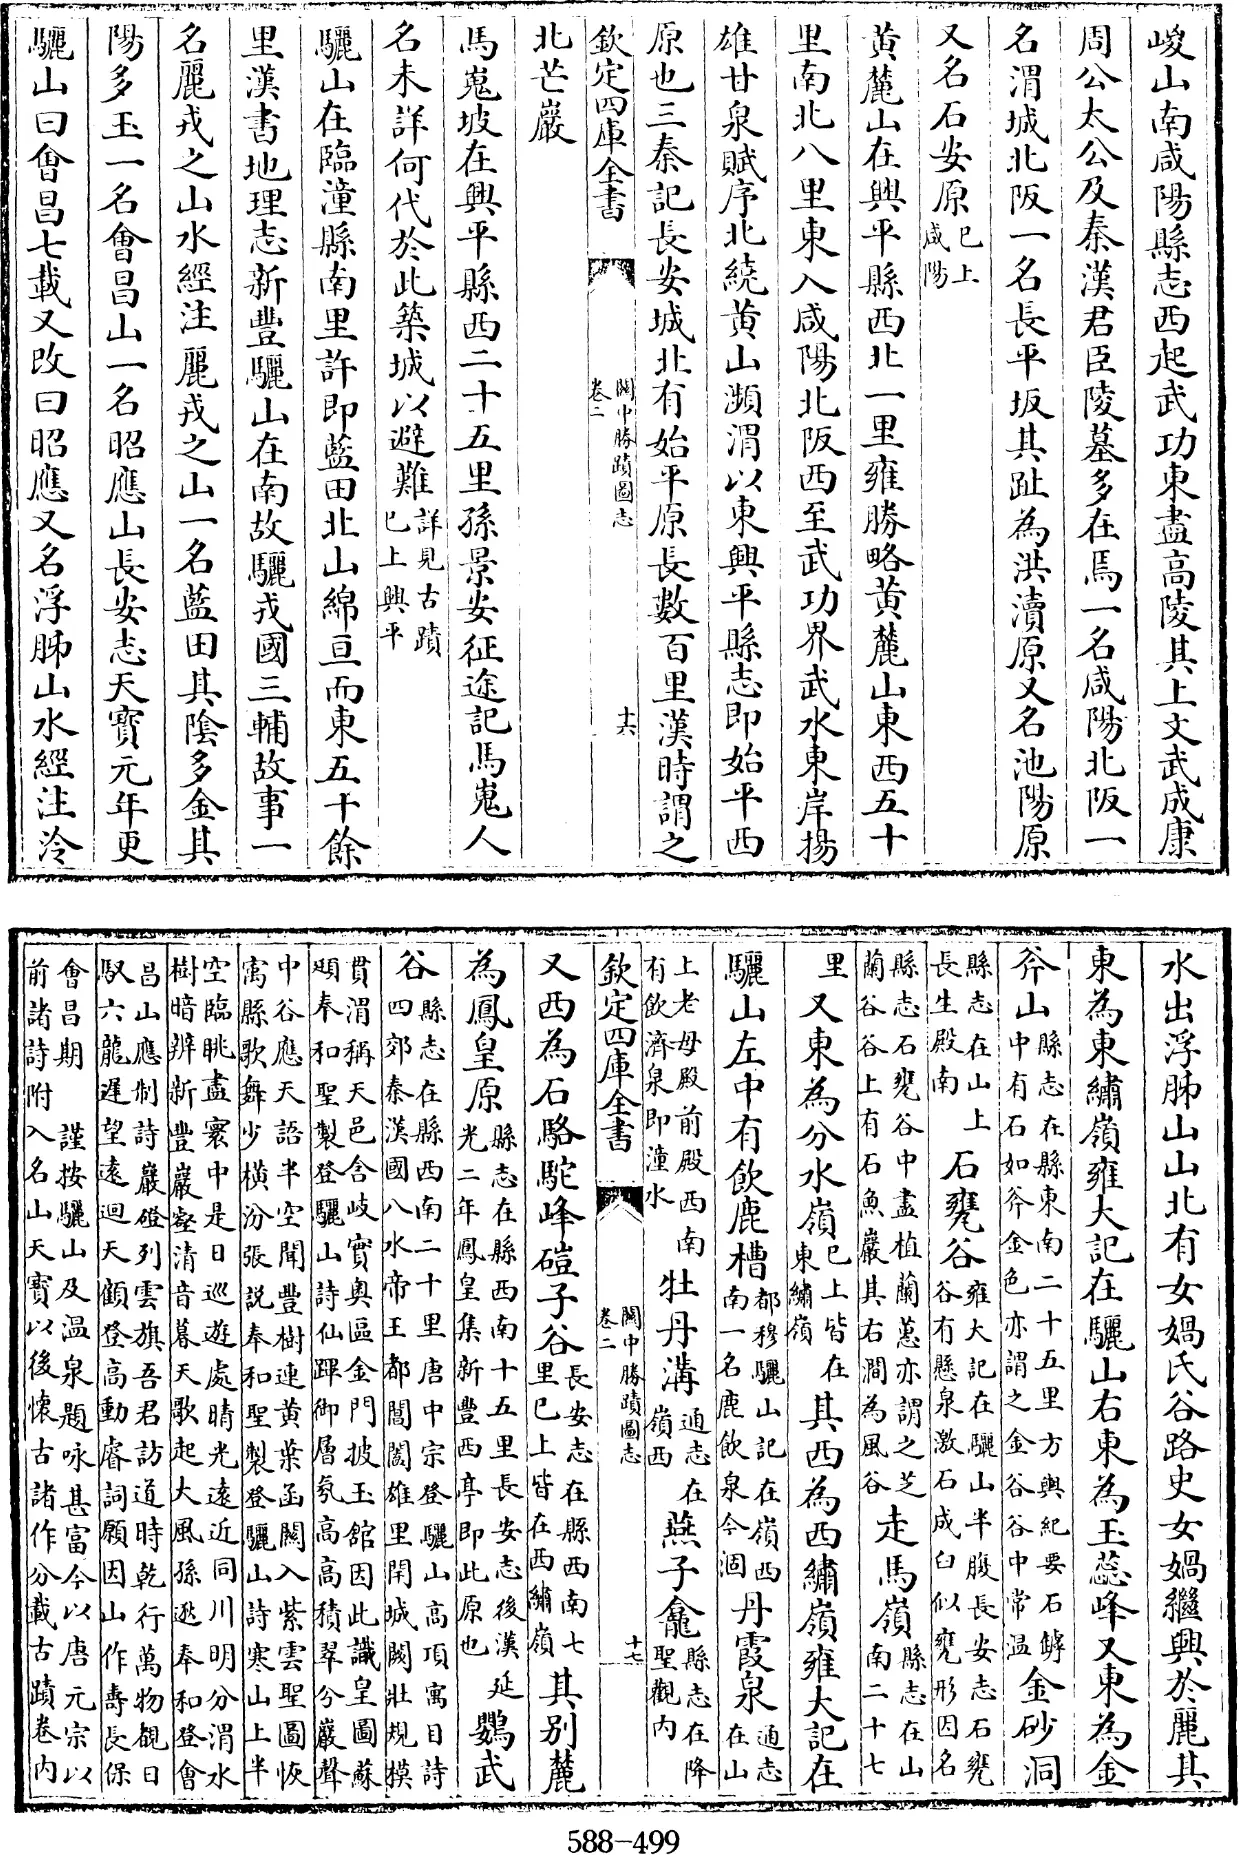 峻山南咸陽縣志西起武功東盡高陵其上文武成康
周公太公及秦漢君臣陵墓多在焉一名咸陽北阪一
名渭城北阪一名長平坂其趾為洪瀆原又名池陽原
又名石安原已上咸陽
黄麓山在興平縣西北一里雍勝略黄麓山東西五十
里南北八里東入咸陽北阪西至武功界武水東岸揚
雄甘泉賦序北繞黄山瀕渭以東興平縣志即始平西
原也三秦記長安城北有始平原長數百里漢時謂之
欽定四庫全書 關中勝蹟圖志 卷二 十六
北芒巖
馬嵬坡在興平縣西二十五里孫景安征途記馬嵬人
名未詳何代於此築城以避難詳見古蹟已上興平
驪山在臨潼縣南里許即藍田北山綿亘而東五十餘
里漢書地理志新豐驪山在南故驪戎國三輔故事一
名麗戎之山水經注麗戎之山一名藍田其陰多金其
陽多玉一名會昌山一名昭應山長安志天寶元年更
驪山曰會昌七載又改曰昭應又名浮胏山水經注泠
水出浮胏山山北有女媧氏谷路史女媧繼興於麗其
東為東繡嶺雍大記在驪山右東為玉蕊峰又東為金
斧山縣志在縣東南二十五里方輿紀要石罅中有石如斧金色亦謂之金谷谷中常温金砂洞
縣志在山上長生殿南石甕谷雍大記在驪山半腹長安志石甕谷有懸泉激石成臼似甕形因名
縣志石甕谷中盡植蘭蕙亦謂之芝蘭谷谷上有石魚巖其右澗為風谷走馬嶺縣志在山南二十七
里又東為分水嶺已上皆在東繡嶺其西為西繡嶺雍大記在
驪山左中有飲鹿槽都穆驪山記在嶺西南一名鹿飲泉今涸丹霞泉通志在山
上老母殿前殿西南有飲濟泉即潼水牡丹溝通志在嶺西燕子龕縣志在降聖觀内
欽定四庫全書 關中勝蹟圖志 卷二 十七
又西為石駱駝峰磑子谷長安志在縣西南七里已上皆在西繡嶺其别麓
為鳳皇原縣志在縣西南十五里長安志後漢延光二年鳳皇集新豐西亭即此原也鸚武
谷縣志在縣西南二十里唐中宗登驪山高頂寓目詩四郊秦漢國八水帝王都閶闔雄里閈城闕壯規模
貫渭稱天邑含岐實奥區金門披玉舘因此識皇圖蘇頲奉和聖製登驪山詩仙蹕御層氛高高積翠分巖聲
中谷應天語半空聞豐樹連黄葉函關入紫雲聖圖恢寓縣歌舞少横汾張説奉和聖製登驪山詩寒山上半
空臨眺盡寰中是日巡遊處晴光遠近同川明分渭水樹暗辨新豐巖壑清音暮天歌起大風孫逖奉和登會
昌山應制詩巖磴列雲旗吾君訪道時乾行萬物覩日馭六龍遲望遠迴天顧登高動睿詞願因山作壽長保
會昌期 謹按驪山及温泉題咏甚富今以唐元宗以前諸詩附入名山天寳以後懷古諸作分載古蹟卷内
588-499